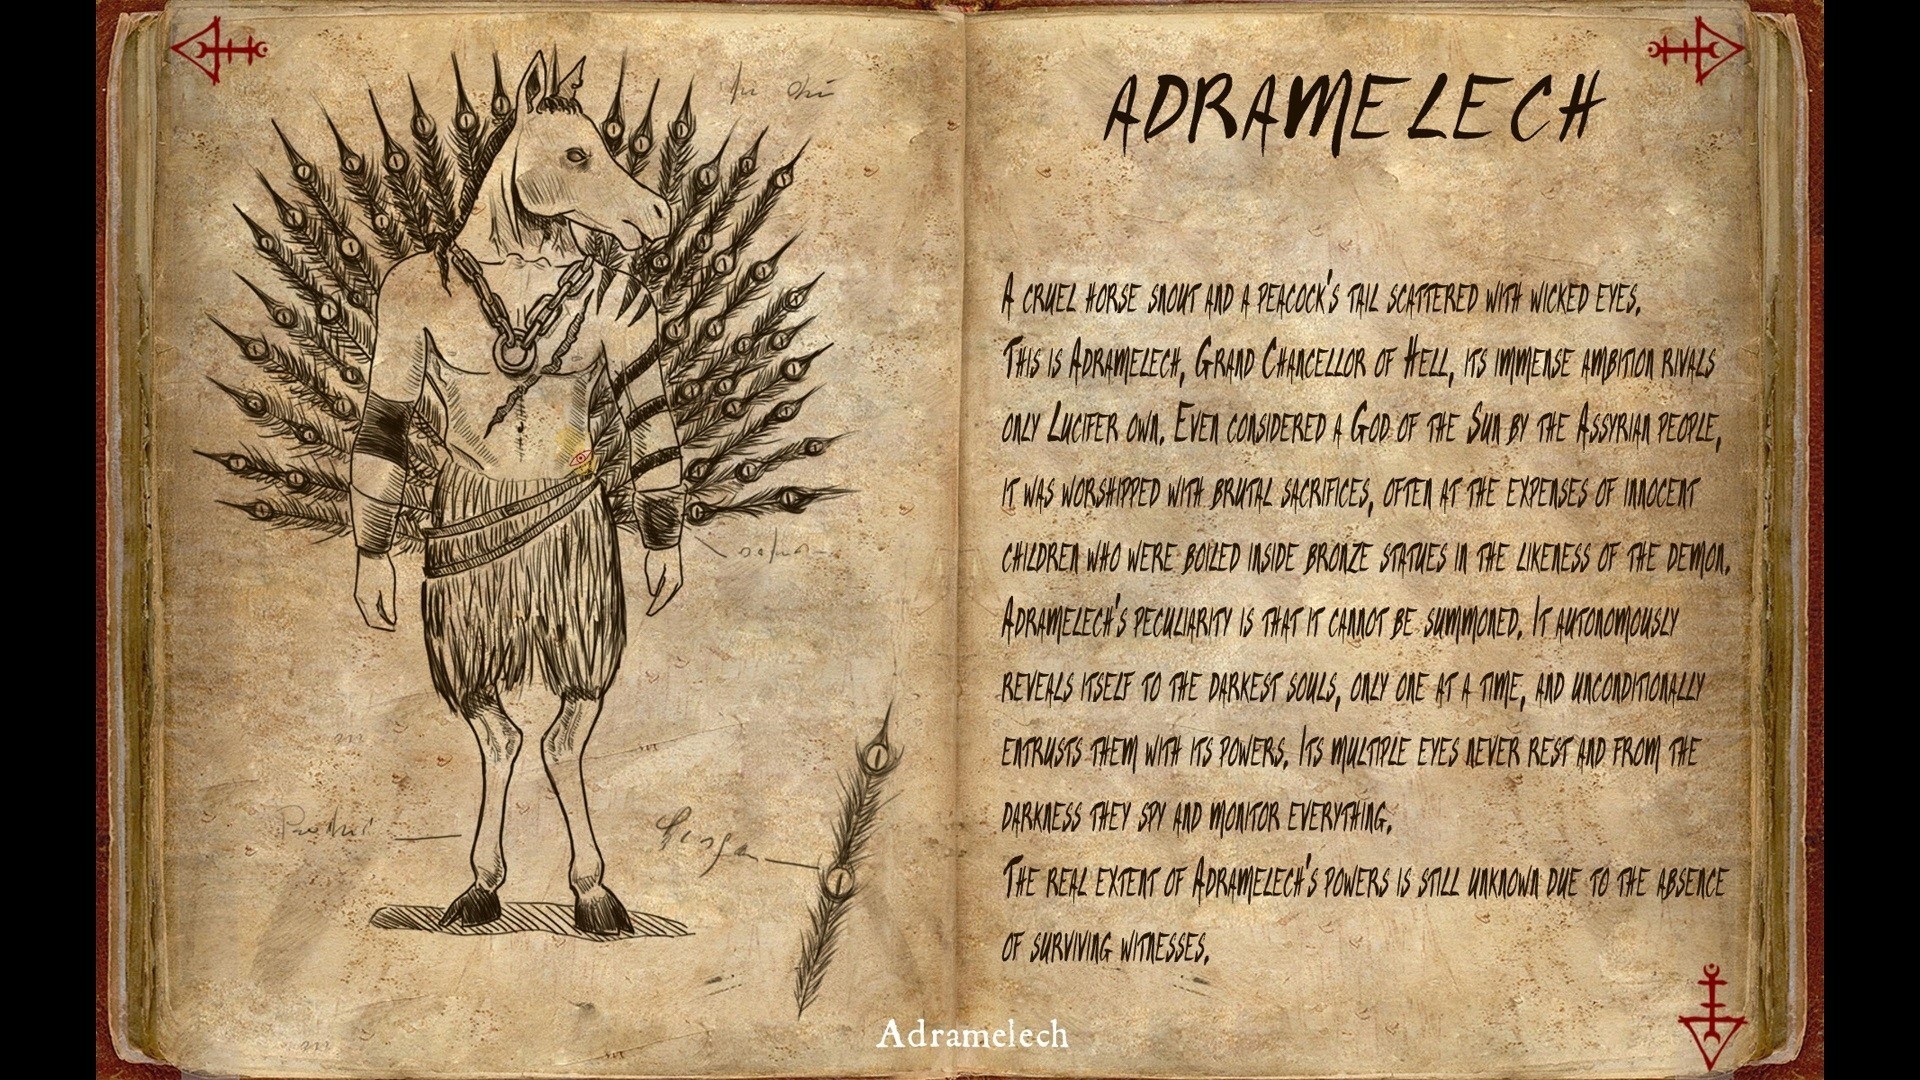 ADRAMELECH
A CRUEL HORSE SNOUT AND A PEACOCK'S TAIL SCATTERED WITH WICKED EYES.
THIS IS ADRAMELECH, GRAND CHANCELLOR OF HELL, ITS IMMENSE AMBITION RIVALS
ONLY LUCIFER OWN. EVEN CONSIDERED A GOD OF THE SUN BY THE ASSYRIAN PEOPLE,
IT WAS WORSHIPPED WITH BRUTAL SACRIFICES, OFTEN AT THE EXPENSES OF INNOCENT
CHILDREN WHO WERE BOILED INSIDE BRONZE STATUES IN THE LIKENESS OF THE DEMON.
ADRAMELECH'S PECULIARITY IS THAT IT CANNOT BE SUMMONED. IT AUTONOMOUSLY
REVEALS ITSELF TO THE DARKEST SOULS, ONLY ONE AT A TIME, AND UNCONDITIONALLY
ENTRUSTS THEM WITH ITS POWERS. ITS MULTIPLE EYES NEVER REST AND FROM THE
DARKNESS THEY SPY AND MONITOR EVERYTHING.
THE REAL EXTENT OF ADRAMELECH'S POWERS IS STILL UNKNOWN DUE TO THE ABSENCE
OF SURVIVING WITNESSES.
Adramelech